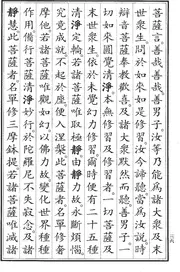 菩薩言善哉善哉善男子汝等乃能爲諸大衆及末
世衆生問於如來如是修習汝今諦聽當爲汝說時
辯音菩薩奉教歡喜及諸大衆默然而聽善男子一
切如來圓覺清淨本無修習及修習者一切菩薩及
末世衆生依於未覺幻力修習爾時便有二十五種
清淨定輪若諸菩薩唯取極靜由靜力故永斷煩惱
究竟成就不起於座便入涅槃此菩薩者名單修奢
摩他若諸菩薩唯觀如幻以佛力故變化世界種種
作用備行菩薩清淨妙行於陀羅尼不失寂念及諸
靜慧此菩薩者名單修三摩鉢提若諸菩薩唯滅諸